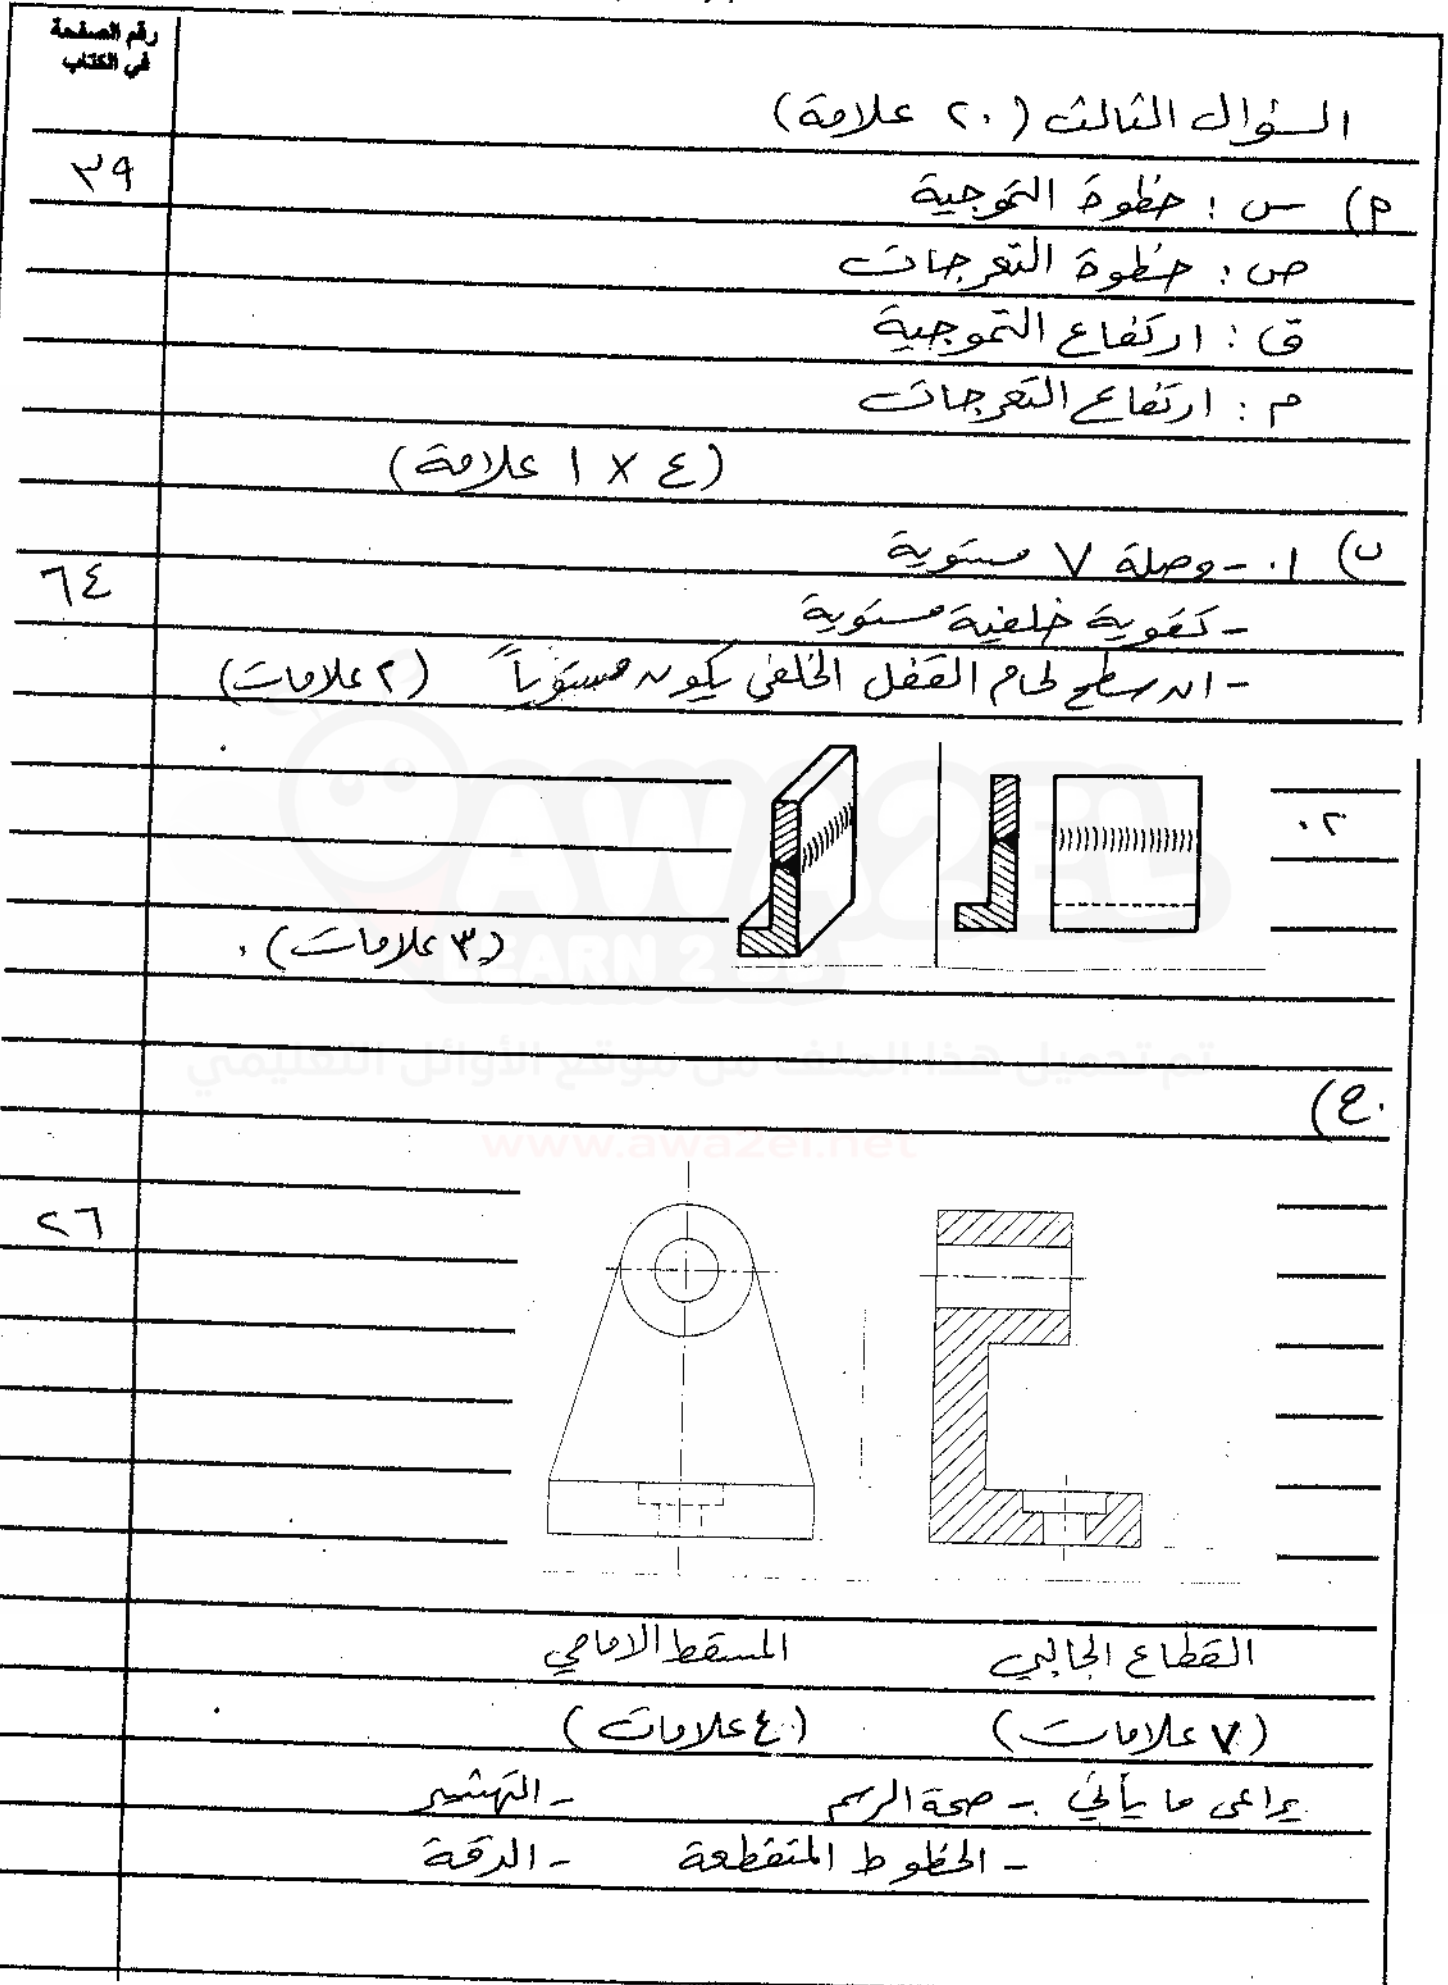 رقم الصفحة
في الكتاب
السؤال الثالث (٢٠ علامة)
٣٩
أ) س : خطوة التموجية
ص : خطوة التعرجات
ق : ارتفاع التموجية
م : ارتفاع التعرجات
(٤ × ١ علامة)
ب) ١. - وصلة V مستوية
٦٤
- تقوية خلفية مستوية
- ان سطح لحام القفل الخلفي يكون مستوياً (٢ علامات)
٢.
AWA2EL
LEARN 2 BE
(٣ علامات)
تم تحميل هذا الملف من موقع الأوائل التعليمي
ج)
www.awa2el.net
٢٦
القطاع الجانبي المسقط الامامي
(٧ علامات) (٤ علامات)
يراعى ما يأتي - صحة الرسم - التهشير
- الخطوط المتقطعة - الدقة